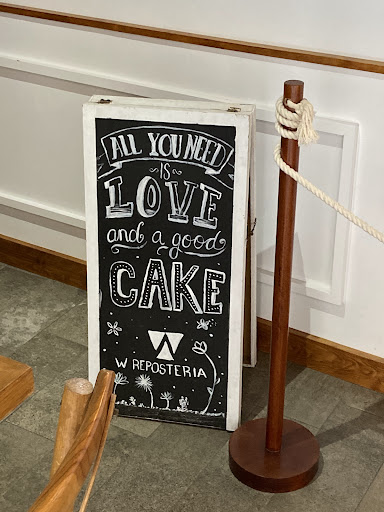 ALL YOU NEED
IS
LOVE
and a good
CAKE
W REPOSTERIA